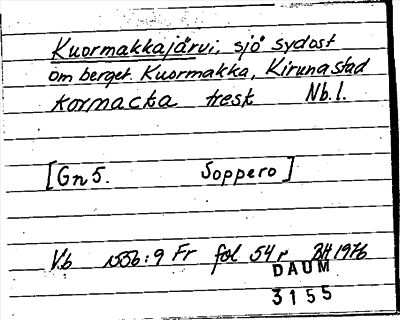 Kuormakkajärvi, sjö sydost
om berget. Kuormakka, Kiruna stad
kormacka tresk Nb.l.
[Gn 5. Soppero]
Vb 1556:9 Fr fol 54 r BH 1976
DAUM
3155